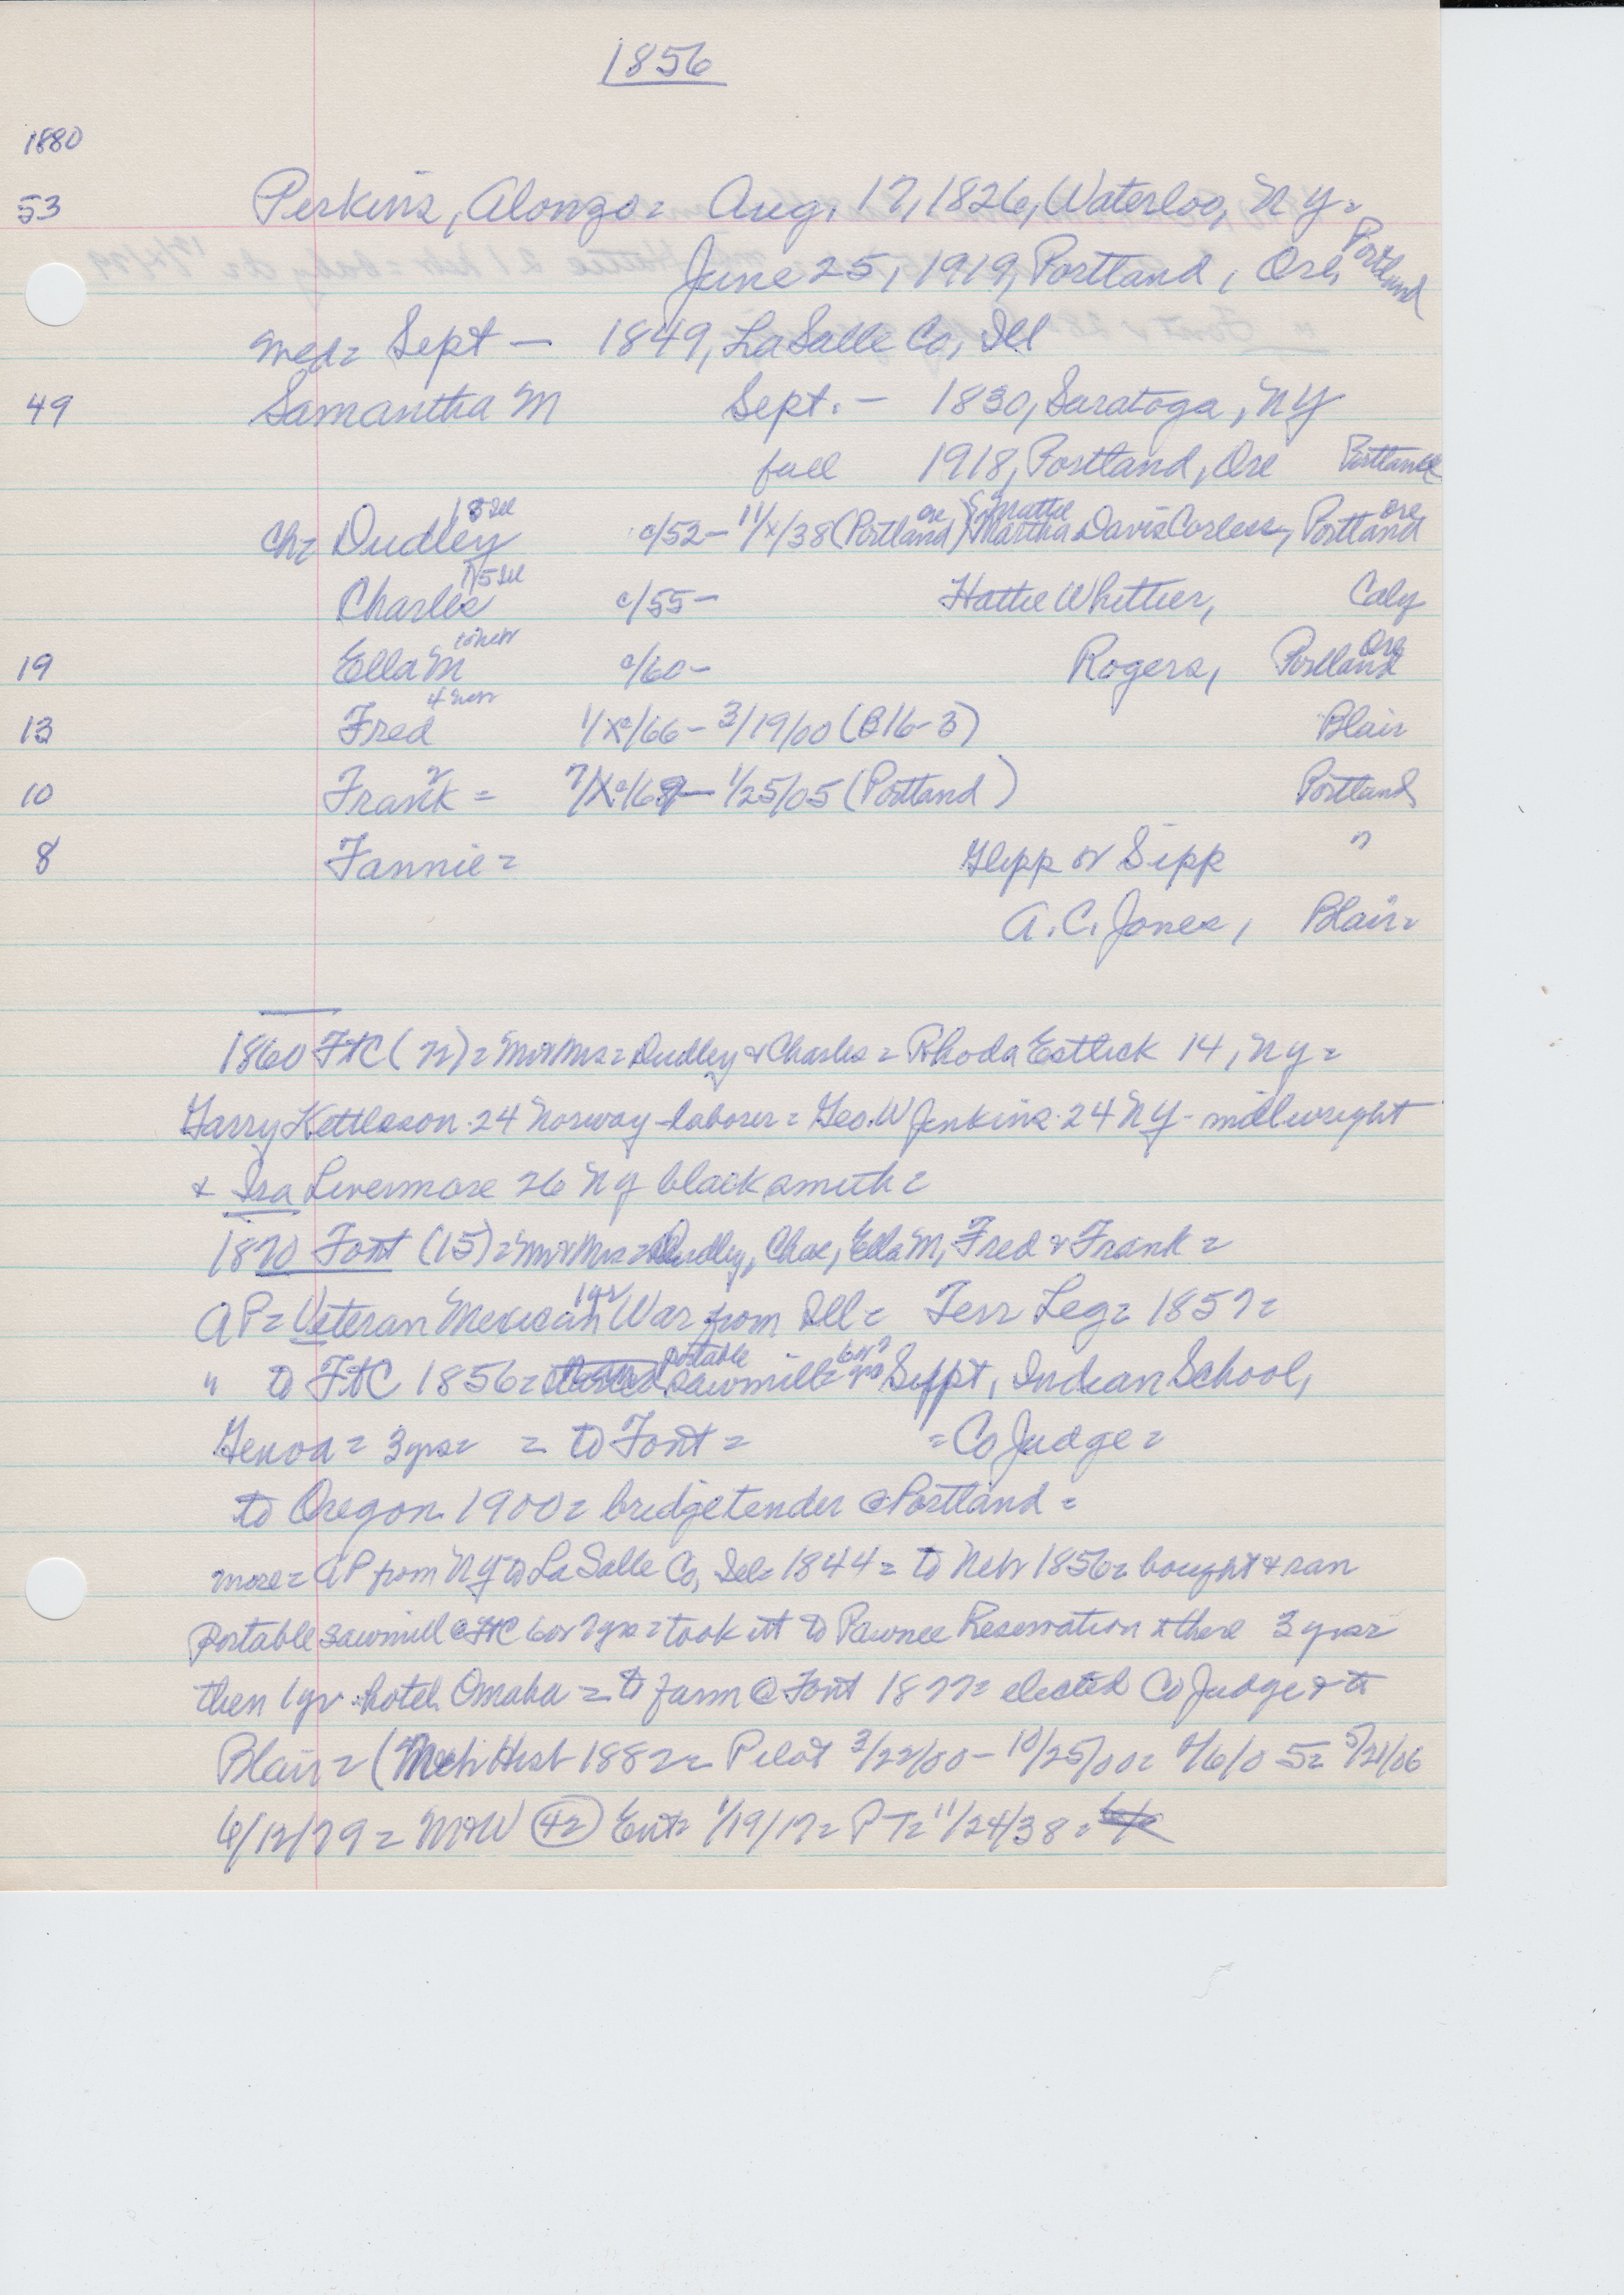 1856
1880
53 Perkins, Alonzo = Aug. 17, 1826, Waterloo, NY =
June 25, 1919, Portland, Ore, Portland
med = Sept — 1849, LaSalle Co, Ill
49 Samantha M Sept. — 1830, Saratoga, NY
fall 1918, Portland, Ore Portland
18 Ill
ch = Dudley c/52 – 11/x/38 (Portland Ore) Mattie Martha Davis Corless, Portland Ore
15 Ill
Charles c/55 – Hattie Whittier, Caly
10 Neb
19 Ella M c/60 – Rogers, Portland Ore
4 Neb
13 Fred 1/x c/66 – 3/19/00 (B16-3) Blair
2
10 Frank = 7/x c/69 – 1/25/05 (Portland) Portland
8 Fannie = Glipp or Sipp "
A. C. Jones, Blair =
1860 FtC (72) = Mr & Mrs = Dudley & Charles = Rhoda Estlick 14, NY =
Garry Kettleson 24 Norway – laborer = Geo. W Jenkins 24 NY – millwright
& Ira Livermore 26 NY blacksmith =
1870 Font (15) = Mr & Mrs = Dudley, Chas, Ella M, Fred & Frank =
AP = Veteran Mexican War 1 yr from Ill = Terr Leg = 1857 =
" to FtC 1856 = portable sawmill = 6 or 7 yrs Suppt, Indian School,
Genoa = 3 yrs = = to Font = = Co Judge =
to Oregon 1900 = bridge tender @ Portland =
more = AP from NY to LaSalle Co, Ill = 1844 = to Neb 1856 = bought & ran
portable sawmill @ FtC 6 or 7 yrs = took it to Pawnee Reservation & there 3 yrs =
then 1 yr hotel Omaha = to farm @ Font 1877 = elected Co Judge & to
Blair = (Neb Hist 1882 = Pilot 3/22/00 – 10/25/00 = 4/6/05 = 5/21/06
6/12/79 = M&W (42) Ent = 1/19/17 = PT = 11/24/38 =